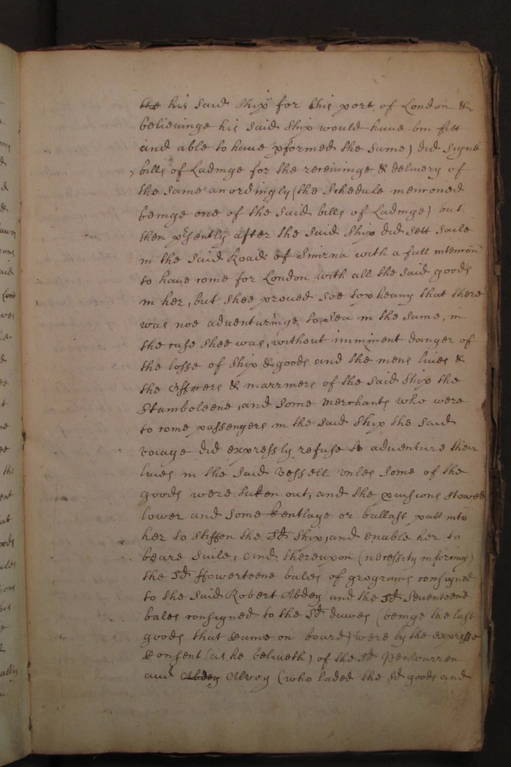 his said ship for this port of London &
believinge his said ship would have bin fitt
and able to have pformed the same) did signe
bills of Ladinge for the receivinge & delivery of
the same accordingly (the Schedule menconed
beinge one of the said bills of Ladinge) but
then psently after the said ship did sett saile
in the said Road of Smirna with a full intencon
to have come for London with all the said goods
in her, but shee proved soe topheavy that there
was noe adventuringe to sea in the same, in
the case shee was, without imminent danger of
the losse of ship & goods and the mens lives &
the officers & marriners of the said ship the
Stamboleene, and some Merchants who were
to come passengers in the said ship the said
voiage did expressly refuse to adventure their
lives in the said vessell unles some of the
goods were taken out, and the stowed
lower and some kentlage or ballast putt into
her to stiffen the sd ship, and enable her to
beare saile, And thereupon (necessity inforcing)
the sd ffowerteene bales of grograms consigned
to the said Robert Abdey and the sd Seventeene
bales consigned to the sd Dawes (beinge the last
goods that came on board) were by the expresse
consent (as he beliueth) of the sd
and Abdey Alvey (who laded the sd goods and